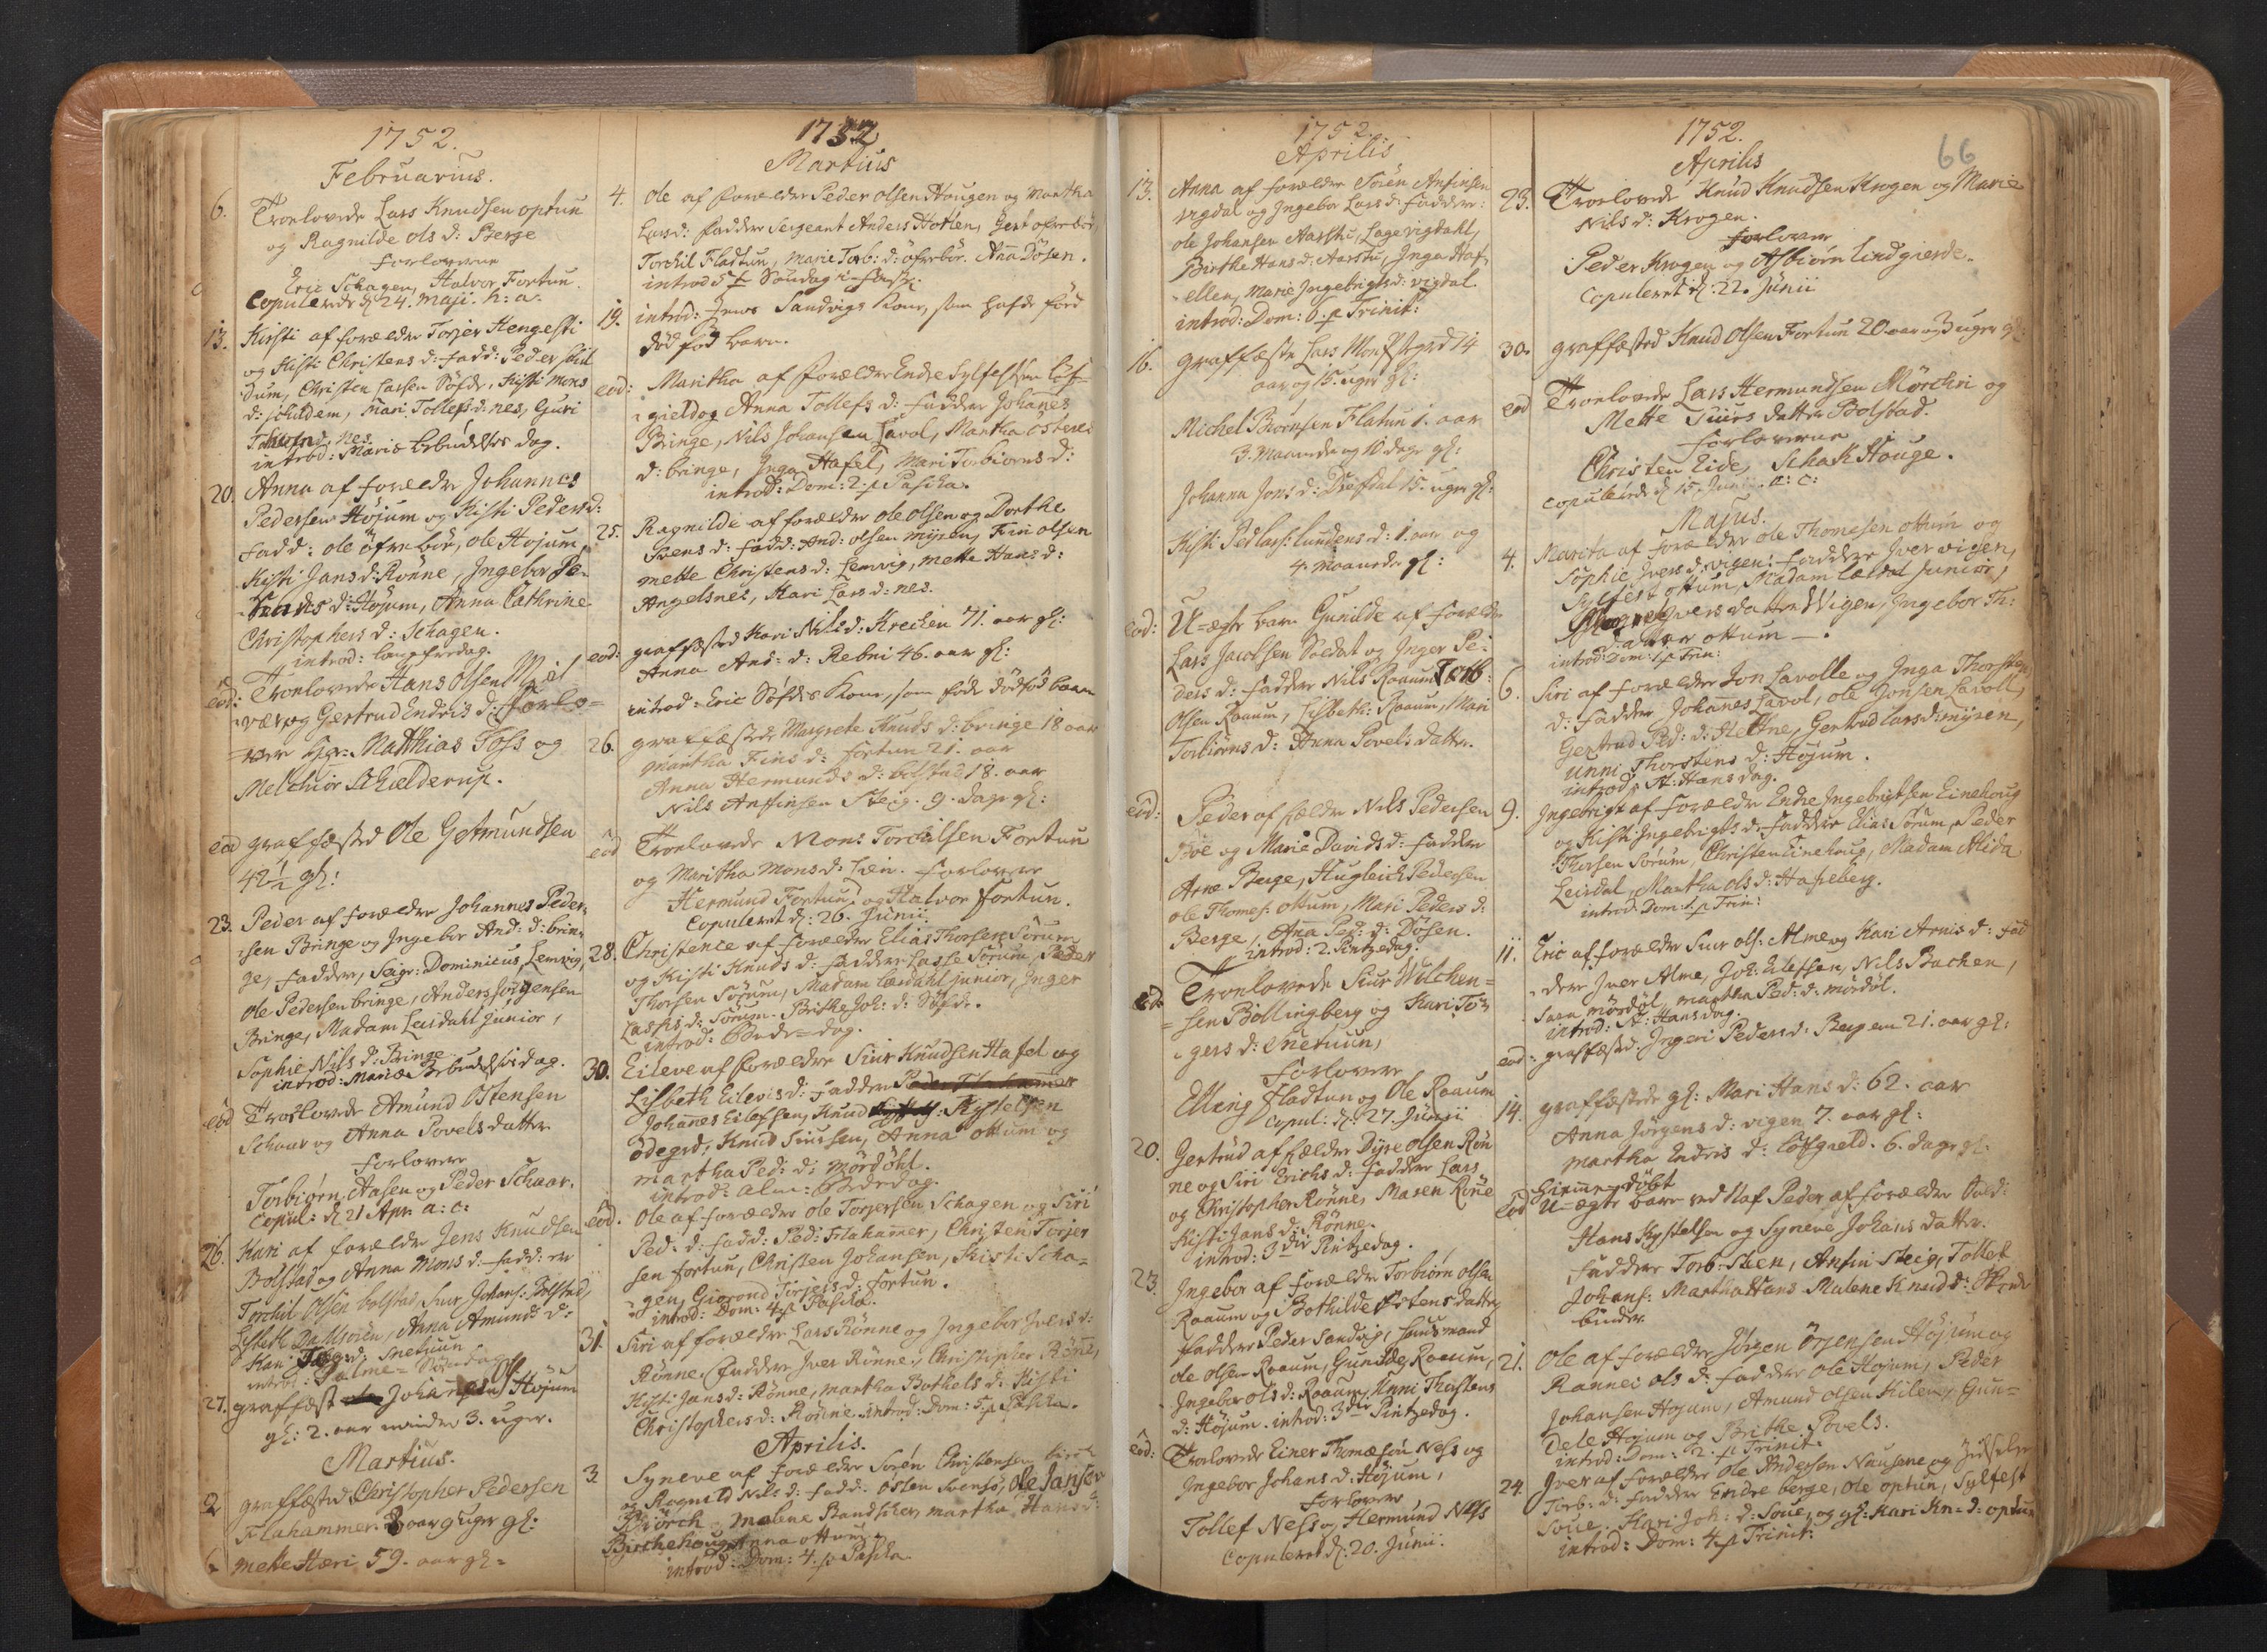 1752.
Februarius.
6. Troelovede Lars Knudsen optun
og Ragnilde Ols d: Berge
Forloverne
Eric Schagen, Halvor Fortun.
Copulerede d. 24. Maji. h: a:
13. Kirsti af forældre Torjer Hengesti
og Kisti Christens d: fadd: Peder Skil
dum, Christen Larsen Söfde, Kisti Mons
d: Schildem, Mari Tollefs d: nes, Guri
nes.
introd: Mariæ bebudelses dag.
20. Anna af forældre Johannes
Pedersen Höjum og Kisti Peders d:
Fadd: ole öfreböe, ole Hojum,
Kisti Jans d: Rönne, Ingebor
d: Höjum, Anna Cathrine
Christophers d: Schagen.
introd: langfredag.
eod: Troelovede Hans Olsen Miel
vær og Gertrud Endris d: Forlo=
vere Sgr: Matthias Foss og
Melchior Schielderup.
eod graffæsted Ole Gotmundsen
42½ gl:
23. Peder af forældre Johannes Peder
sen Bringe og Ingebor And: d: brin
ge, faddere, Seigr: Dominicus Lemvig,
Ole Pedersen bringe, Anders Jörgensen
Bringe, Madam Leirdahl junior,
Sophie Nils d: Bringe
introd: Mariæ Bebudelsis dag.
eod Troelovede Amund Ostensen
Schaar og Anna Povels datter
Forlovere
Torbiörn Aasen og Peder Schaar.
Copul: d. 21 Apr. a: c:
26. Kari af forældre Jens Knudsen
Bolstad og Anna Mons d: fadd: er
Torchil Olsen bolstad, Siur Johans: Bolstad,
Lisbeth, Anna Amunds d:
Kari d: Snetuun
introd: Palme= Söndag
27. graffæst Johansen Höjum
gl: 2. aar mindre 3. uger.
Martius.
2 graffæsted Christopher Pedersen
Flahammer. 8 aar 9 uger gl:
Mette Hæri 59. aar gl=
1752
Martius
4. Ole af forældre Peder Olsen Haugen og Martha
Lars d: faddere Sergeant Anders Hotlen, Gert ofrebö,
Torchil Fladtun, Marie Torb: d: öfrebö. Anna Dösen.
introd 5te Söndag i faste.
19. introd: Jens Sandvigs Kone, som hafde föd
död föd barn.
eod: Maritha af forældre Endre Sylfestsen löf=
gield og Anna Tollefs d: faddere Johannes
Bringe, Nils Johansen Lavol, Martha ostens
d: bringe, Inga Hafel, Mari Torbiorns d:
introd: Dom: 2. p Pascha.
25. Ragnilde af forældre ole Olsen og Dorthe
Svens d: fadd: And: Olsen myren, Fin olsen
Mette Christens d: Lemvig, Mette Hans d:
Angelsnes, Kari Lars d: nes.
eod: graffæsted Kari Nils d: Krechen 71. aar gl:
Anna And: d: Rebni 46. aar gl:
introd: Eric Söfdes Kone, som föde dödföd barn
26. graffæstede Margrete Knuds d: bringe 18 aar
Martha Fins d: fortun 21. aar
Anna Hermunds d: bolstad 18. aar
Nils Anfinsen Steig. 9. dage gl:
eod Troelovede Mons Torchilsen Fortun
og Maritha Mons d: Lien. forlovere
Hermund Fortun og Halvor Fortun.
Copuleret d: 26. Junii
28. Christence af forældre Elias Thorsen Sörum
og Kisti Knuds d: faddere Lasse Sörum, Peder
Thorsen Sörum, Madam Leerdahl junior, Inger
Lasses d: Sörum. Brithe Joh: d: Söfde.
introd: Bede=dag.
30. Eileve af forældre Siur Knudsen Hafel og
Lisbeth Eilevis d: faddere
Johannes Eilefsen, Knud Kystelsen
ödegrd, Knud Siursen, Anna ottum og
Martha Ped: d: Mördöhl.
introd: alm: Bededag.
eod. Ole af forældre ole Torjersen Schagen og Siri
Ped: d: fadd: Ped: Flahamer, Christen Torjer
sen fortun, Christen Johansen, Kisti Scha=
gen, Giorond Torjers d: fortun.
introd: Dom: 4 p Pascha.
31. Siri af forældre Lars Rönne og Ingebor Ivers d:
Rönne. faddere Iver Rönne, Christopher Rönne,
Kisti Jans d: Rönne, Martha Bothels d: Kisti
Christophers d: Rönne. introd: Dom: 5. p Pascha.
Aprilis.
3 Syneve af forældre Sören Christensen
og Ragnild Nils d: fadd: Osten Svensö, Ole Jansen
Biörch. Malene Bandsleer Martha Hans d:
Birchehoug Anna ottum
introd: Dom: 4. p Pascha
1752.
Aprilis
13. Anna af forældre Sören Anfinsen
vigdal og Ingebor Lars d: faddere:
ole Johansen Aarstu, Lage vigdahl,
Birthe Hans d: Aarstu, Inga Haf=
ellen, Marie Ingebrigts d: vigdal.
introd: Dom: 6. p Trinit:
16. graffæste Lars Mons ögrd 14
aar og 15. uger gl:
Michel Flatun 1. aar
3. Maaneder og 10 dage gl:
Johanna Jons d: Dröfdal 15. uger gl:
Kisti Ped lars: lundens d: 1. aar og
4. maaneder gl:
eod: U=ægte barn Gunilde af forældre
Lars Jacobsen Soldat og Inger Pe=
ders d: faddere Nils Roaum, Torb:
Olsen Roaum, Lisbeth: Roaum, Mari
Torbiörns d: Anna Povels datter.
eod: Peder af fældre Nils Pedersen
Böe og Marie Davids d: faddere
Arne Berge, Hugleich Pedersen
ole Thomes: ottum, Mari Peders d:
Berge, Ana Ped: d: Dösen.
introd: 2. Pintzedag.
eod. Troelovede Siur Wilchen=
sen Bollingberg og Kari Tor=
gers d: Snetuun,
Forlovere
Elling Fladtun og Ole Roaum
Copul: d. 27. Junii
20. Gertrud af fældre Dyre Olsen Rön
ne og Siri Erichs d: faddere Lars
og Christopher Rönne, Maren Röne
Kisti Jans d: Rönne.
introd: 3die Pintzedag.
23. Ingebor af forældre Torbiörn olsen
Roaum og Bothilde Ostens datter
faddere Peder Sandvig, huusmand
ole olsen Roaum, Gunilde Roaum,
Ingebor Ols d: Roaum, Unni Thorstens
d: Höjum. introd: 3die Pintzedag.
eod: Troelovede Einer Thomæsön Ness og
Ingebor Johans d: Höjum,
Forlovere
Tollef Ness og Hermund Ness
Copuleret d. 20. Junii.
66
1752.
Aprilis
23. Troelovede Knud Knudsen Krogen og Marie
Nils d: Krogen.
Forlovere
Peder Krogen og Asbiörn lindgierde.
Copuleret d. 22. Junii
30. graffæsted Knud Olsen Fortun 20 aar og 3 uger gl:
eod Troelovede Lars Hermundsen Mörchri og
Mette Siurs datter Bolstad.
Forloverne
Christen Eide, Schak Houge.
copulerede d. 15. Junii. a: c:
Majus.
4. Marita af forældre ole Thomesen ottum og
Sophie Ivers d: vigen: faddere Iver vigen,
Sylfest ottum, Madam Lærdal Junior,
Ivers datter Wigen, Ingebor Th:
datter ottum.
introd: Dom: 1. p Trin:
6. Siri af forældre Jon Lavolle og Inga Thorstens
d: Faddere Johannes Lavol, ole Jonsen Lavoll,
Gertrud Ped: d: Hettne, Gertrud Lars d: myren,
Unni Thorstens d: Höjum.
introd: St: Hans dag.
9. Ingebrigt af forældre Endre Ingebrigtsen Einehoug
og Kisti Ingebrigts d: faddere Elias Sörum, Peder
Thorsen Sörum, Christen Einehoug, Madam Alida
Leirdal, Martha Ols d: Hafseberg.
introd: Dom: 1. p Trin:
11. Eric af forældre Siur ols: Alme og Kari Arnis d: fad
dere Iver Alme, Joh: Eilefsen, Nils Bachen,
mördöl, Martha Ped: d: mördöl.
introd: St: Hansdag.
eod: graffæsted Ingeri Peders d: Bergem 21. aar gl:
14. graffæstede gl: Mari Hans d: 62. aar
Anna Jörgens d: vigen 7. aar gl:
Martha Endris d: löfgield. 6. dage gl:
hiemme=döbt
eod U=ægte barn ved Naf Peder af forældre Sold:
Hans Kystelsen og Syneve Johans datter.
Faddere Torb: Steen, Anfin Steig, Tollef
Johans: Martha Hans Malene Knud d:
binder
21. Ole af forældre Jörgen Örjensen Höjum og
Rannei Ols d: faddere Ole Hojum, Peder
Johansen Hojum, Amund Olsen Kilen, Gun=
dele Hojum og Brithe Povels.
introd: Dom: 2. p Trinit:
24. Iver af forældre Ole Andersen Nausene og Zidselie
Torb: d: faddere Endre berge, Ole optun, Sylfest
Soue. Kari Joh: d: Soue, og gl: Kari Kn= d: optun
introd: Dom: 4. p Trinit: